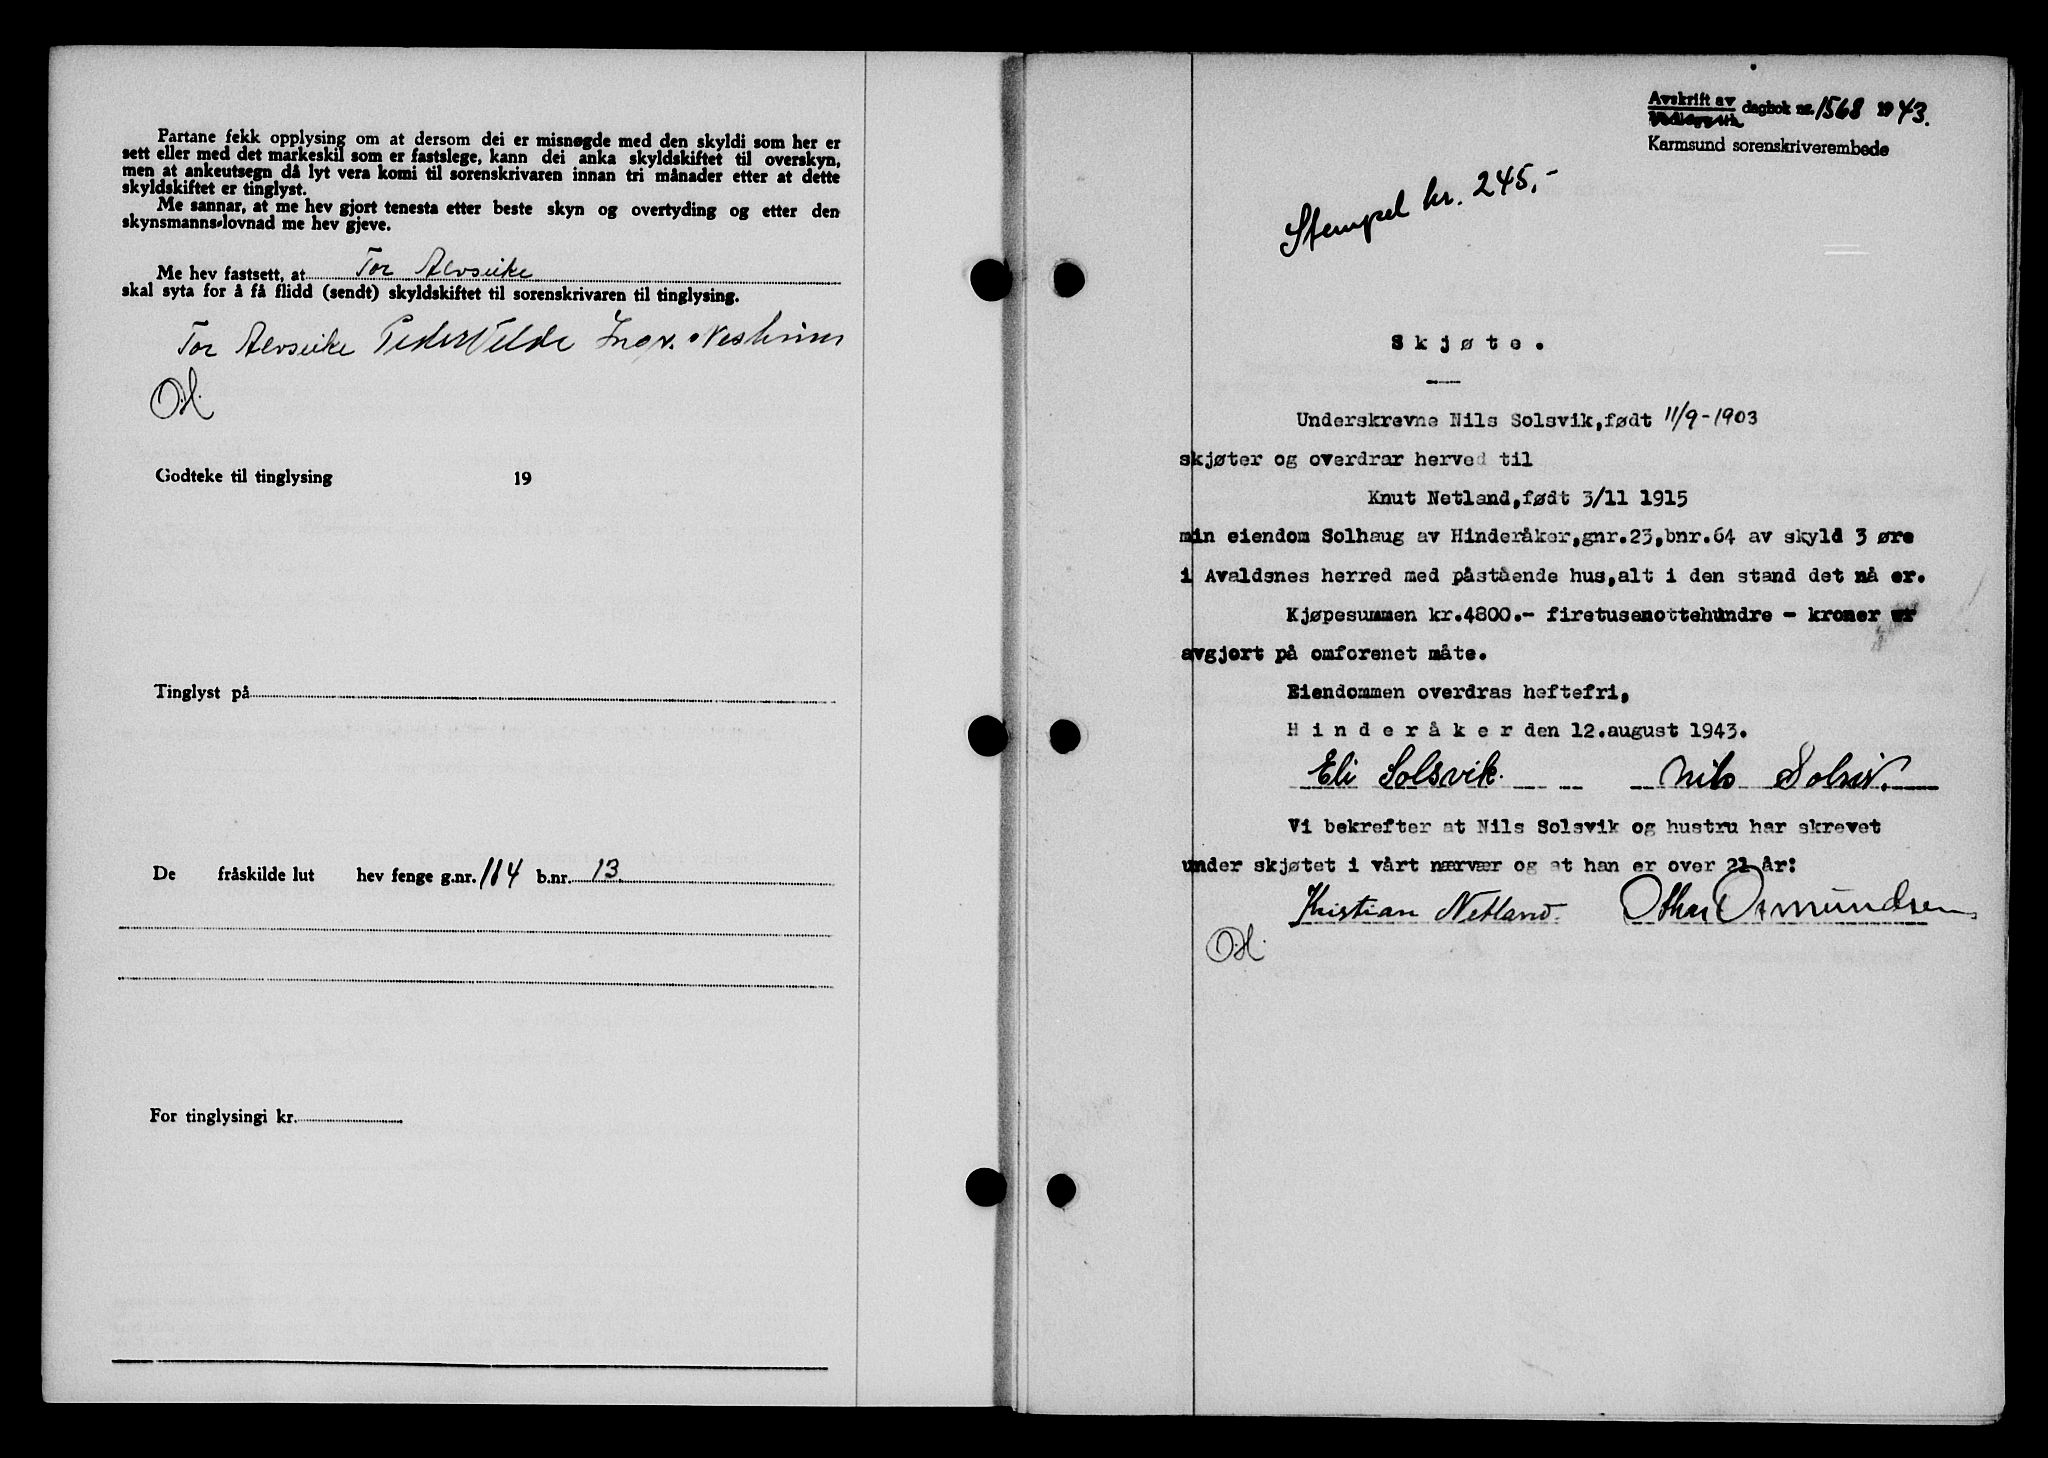 Partane fekk opplysing om at dersom dei er misnøgde med den skyldi som her er
sett eller med det markeskil som er fastslege, kann dei anka skyldskiftet til overskyn,
men at ankeutsegn då lyt vera komi til sorenskrivaren innan tri månader etter at dette
skyldskiftet er tinglyst.
Me sannar, at me hev gjort tenesta etter beste skyn og overtyding og etter den
skynsmanns-lovnad me hev gjeve.
Me hev fastsett, at Tor Alvseike
skal syta for å få flidd (sendt) skyldskiftet til sorenskrivaren til tinglysing.
Tor Alvseike Peder Velde Ingv. Nesheim
O.H.
Godteke til tinglysing 19
Tinglyst på
De fråskilde lut hev fenge g.nr. 114 b.nr. 13.
For tinglysingi kr.
Avskrift av dagbok nr. 1568 1943.
Karmsund sorenskriverembede
Stempel kr. 245,-
Skjøte.
Underskrevne Nils Solsvik, født 11/9-1903
skjøter og overdrar herved til
Knut Netland, født 3/11 1915
min eiendom Solhaug av Hinderåker, gnr.23, bnr.64 av skyld 3 øre
i Avaldsnes herred med påstående hus, alt i den stand det nå er.
Kjøpesummen kr.4800.- firetusenottehundre - kroner er
avgjort på omforenet måte.
Eiendommen overdras heftefri,
Hinderåker den 12.august 1943.
Eli Solsvik. Nils Solsvik.
Vi bekrefter at Nils Solsvik og hustru har skrevet
under skjøtet i vårt nærvær og at han er over 21 år:
Kristian Netland. Osmundsen
O.H.